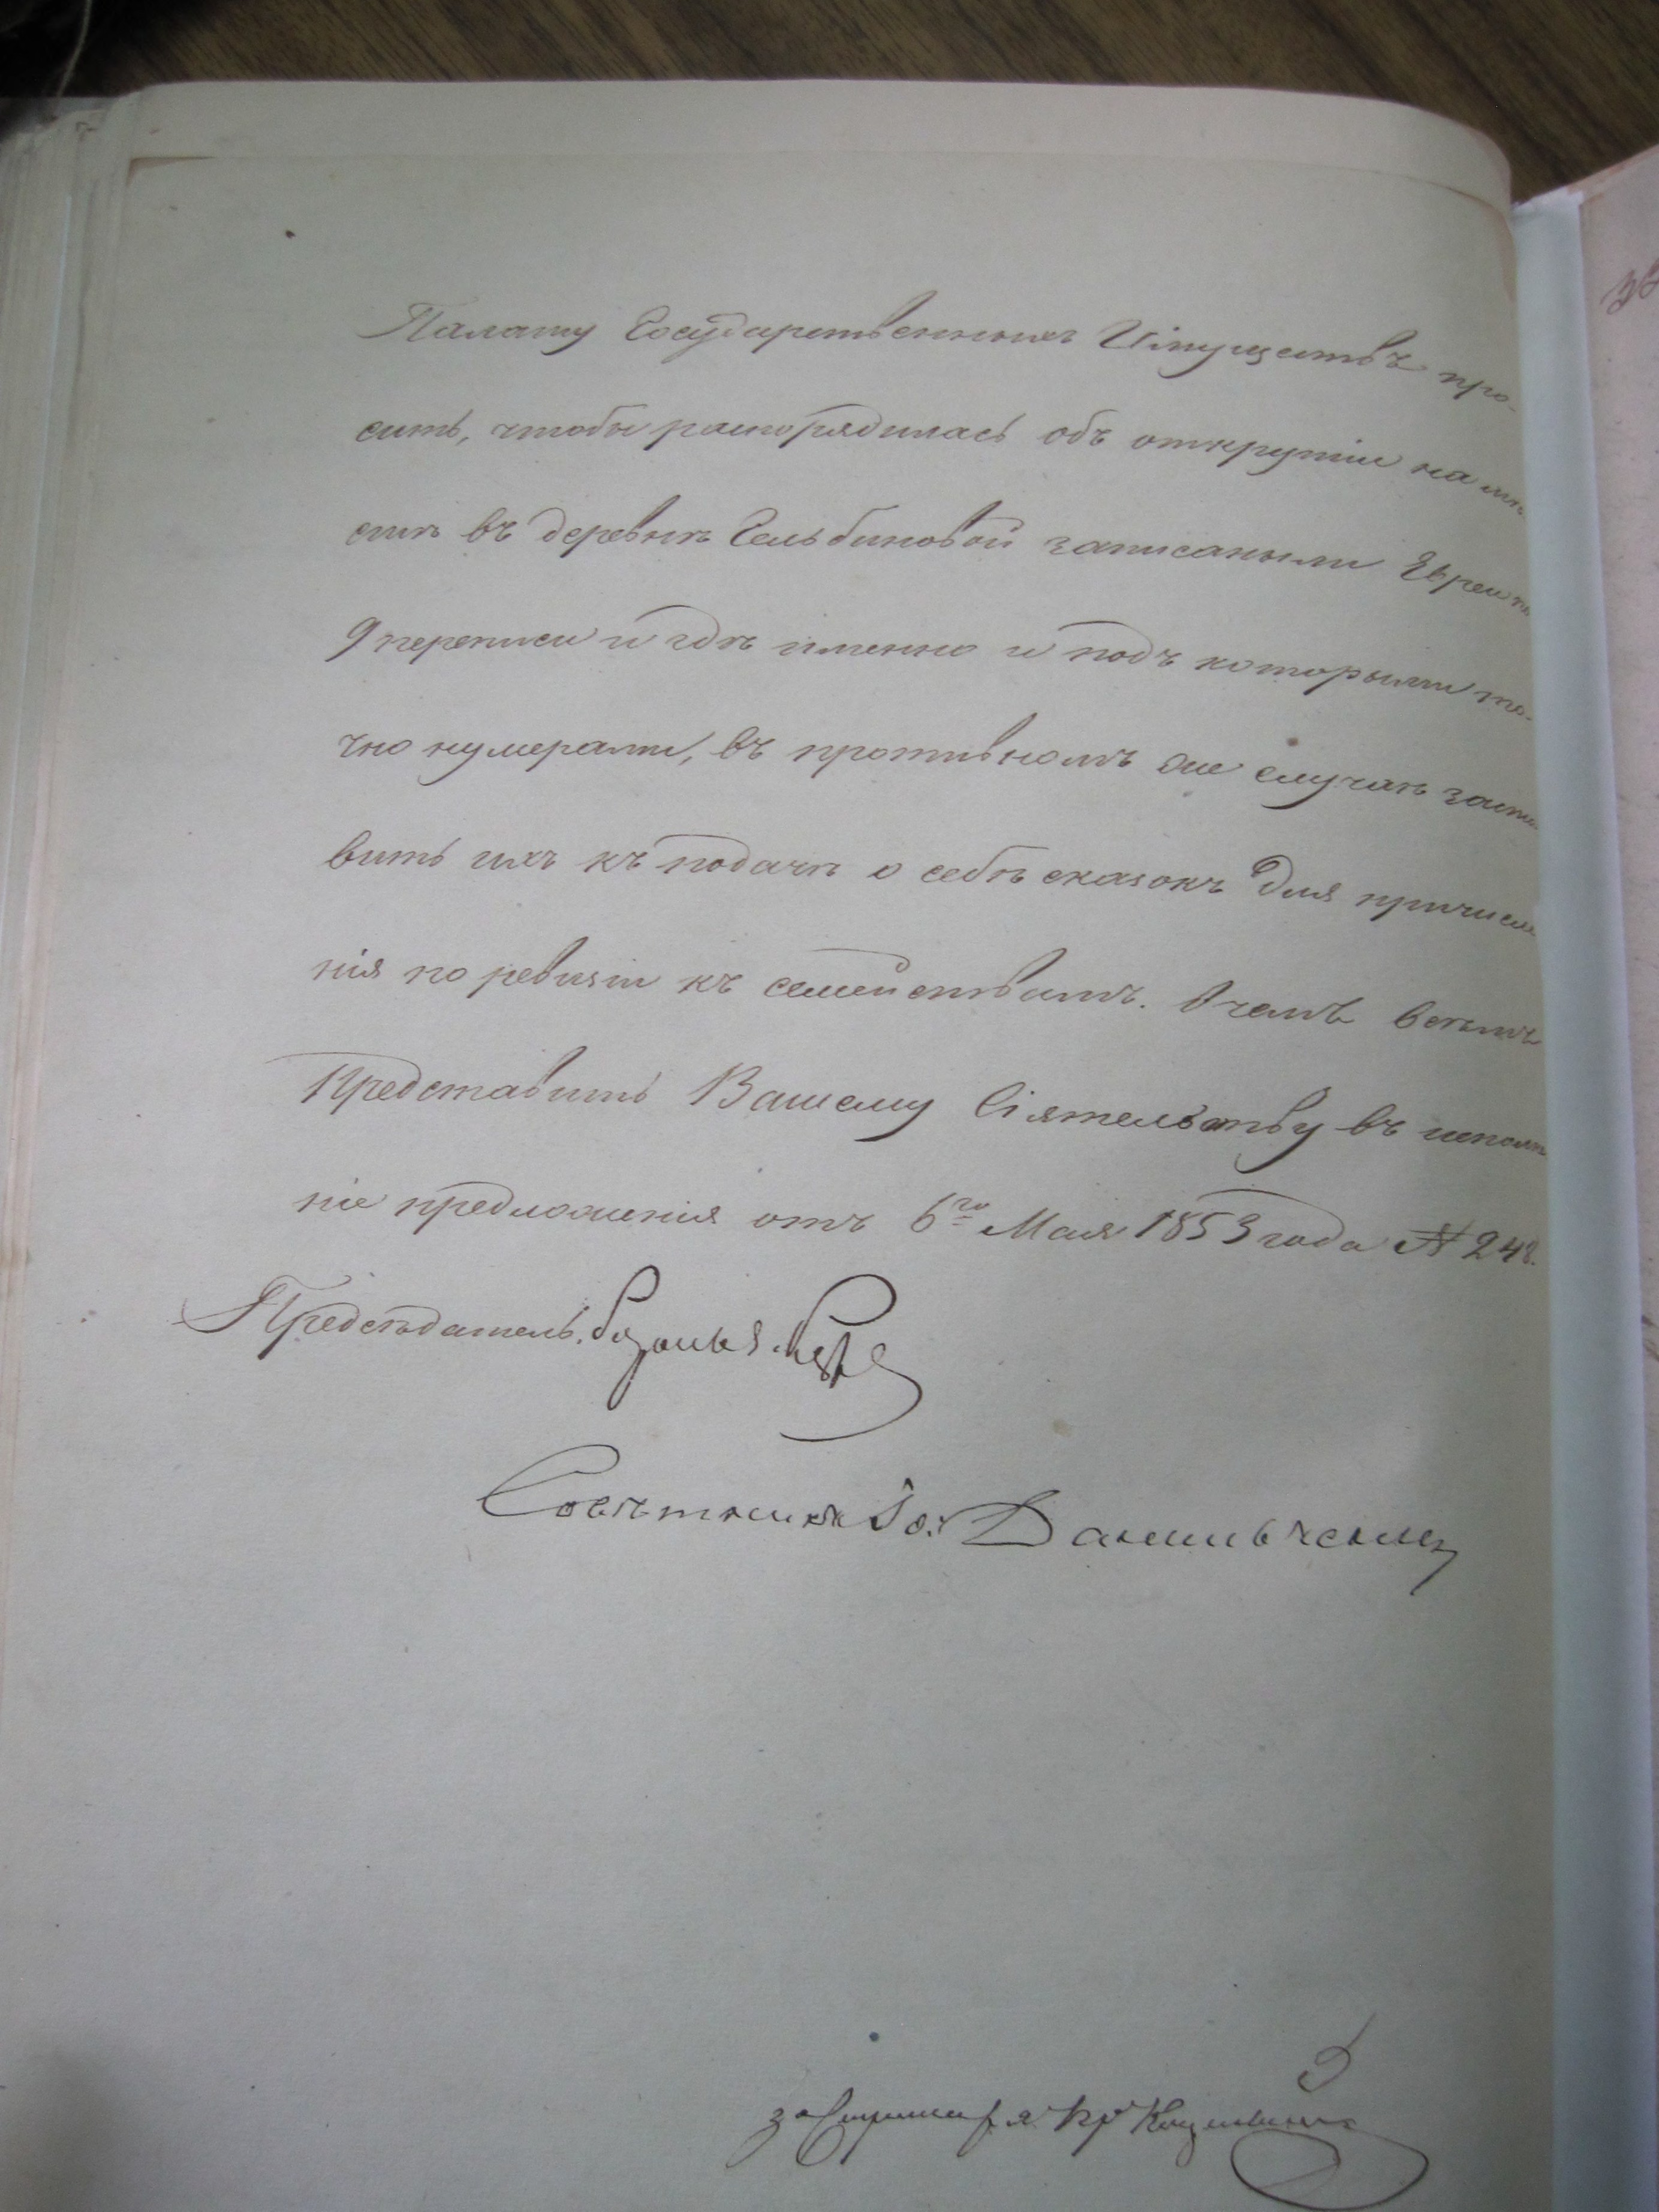 Палату Государственныхъ Имуществъ про-
сить, чтобы распорядилась объ открытіи на мѣ
стѣ въ деревнѣ Гельбиновой записаными Евреи по
9 переписи и гдѣ именно и подъ которыми то-
чно нумерами, въ противномъ же случаѣ заста
вить ихъ къ подачѣ о себѣ сказокъ для причисле
нія по ревизіи къ семействамъ. О чемъ
Представить Вашему Сіятельству въ исполне
ніе предложенія отъ 6го Мая 1853 года № 248.
Предсѣдатель.
Совѣтникъ
за Секретаря